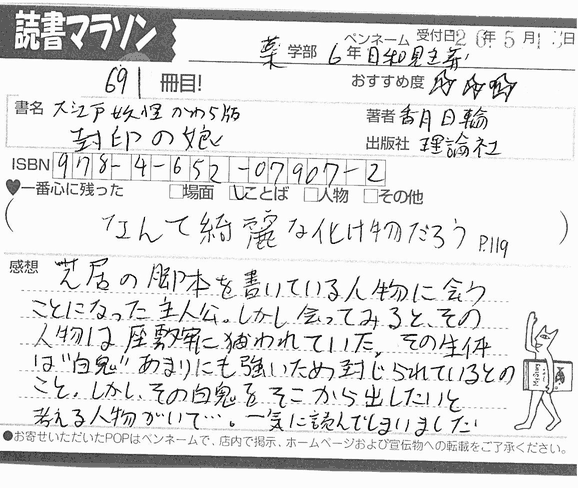 読書マラソン
ペンネーム 受付日20年5月13日
薬学部 6年 日和見主義
691冊目!
おすすめ度 ☆☆☆
書名 大江戸妖怪かわら版
封印の娘
著者 香月日輪
出版社 理論社
ISBN 978-4-652-07907-2
♥一番心に残った □場面 □ことば □人物 □その他
(なんて綺麗な化け物だろう P.119)
感想 芝居の脚本を書いている人物に会う
ことになった主人公。しかし会ってみると、その
人物は座敷牢に捕われていた。その生体
は"白鬼"あまりにも強いため封じられているとの
こと。しかし、その白鬼をそこから出したいと
考える人物がいて…。一気に読んでしまいました
●お寄せいただいたPOPはペンネームで、店内で掲示、ホームページおよび宣伝物への転載をご了承ください。